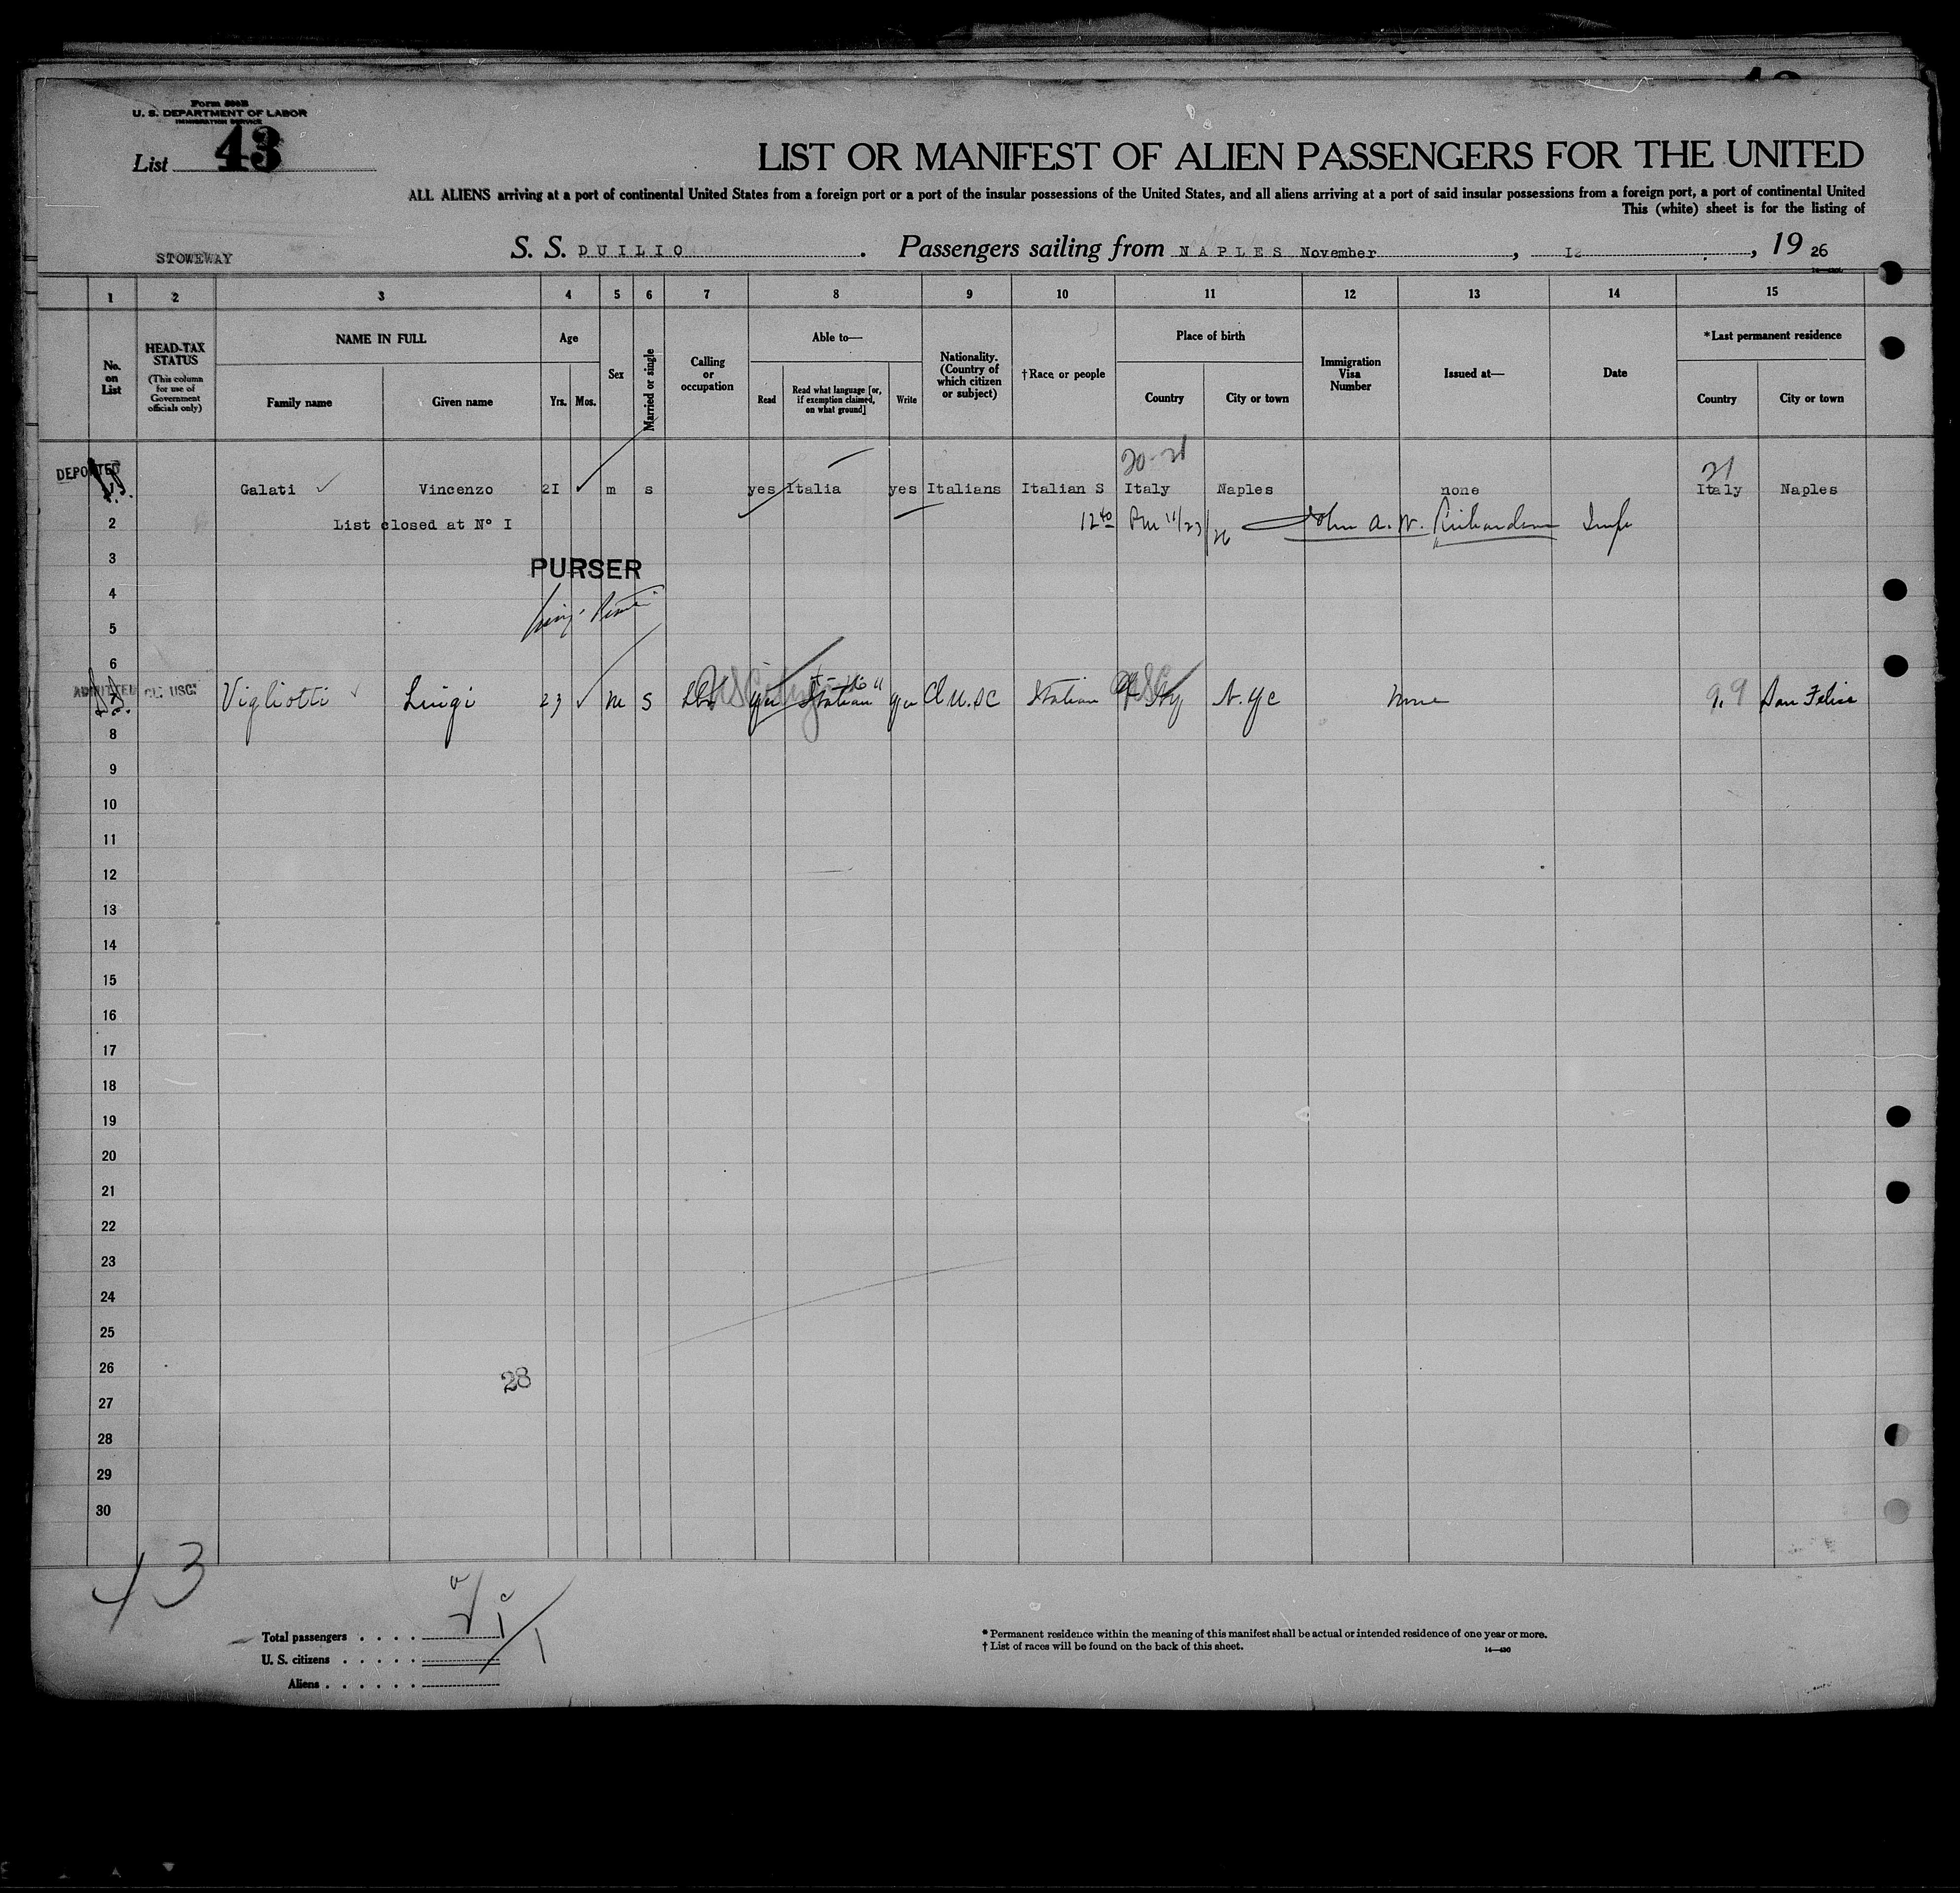 Form 500B
U. S. DEPARTMENT OF LABOR
IMMIGRATION SERVICE
List 43
LIST OR MANIFEST OF ALIEN PASSENGERS FOR THE UNITED
ALL ALIENS arriving at a port of continental United States from a foreign port or a port of the insular possessions of the United States, and all aliens arriving at a port of said insular possessions from a foreign port, a port of continental United
This (white) sheet is for the listing of
STOWEWAY
S. S. DUILIO . Passengers sailing from NAPLES November , I2 , 19 26
1 2 3 4 5 6 7 8 9 10 11 12 13 14 15
No. on List
HEAD-TAX STATUS (This column for use of Government officials only)
NAME IN FULL
Family name Given name
Age
Yrs. Mos.
Sex
Married or single
Calling or occupation
Able to—
Read Read what language [or, if exemption claimed, on what ground] Write
Nationality. (Country of which citizen or subject)
†Race or people
Place of birth
Country City or town
Immigration Visa Number
Issued at—
Date
*Last permanent residence
Country City or town
DEPORTED
20-21 21
Galati Vincenzo 2I m s yes Italia yes Italians Italian S Italy Naples none Italy Naples
2 List closed at Nº I 12 40 Pm 11/23/26 John A. W. Richardson
3 PURSER
4
5
6
ADMITTED USC
Vigliotti Luigi 23 m S Italian U.S.C Italian N.Y.C None San Felice
8
9
10
11
12
13
14
15
16
17
18
19
20
21
22
23
24
25
26
28
27
28
29
30
43
Total passengers . . . .
U. S. citizens . . . . .
Aliens . . . . . .
* Permanent residence within the meaning of this manifest shall be actual or intended residence of one year or more.
† List of races will be found on the back of this sheet.
14—430